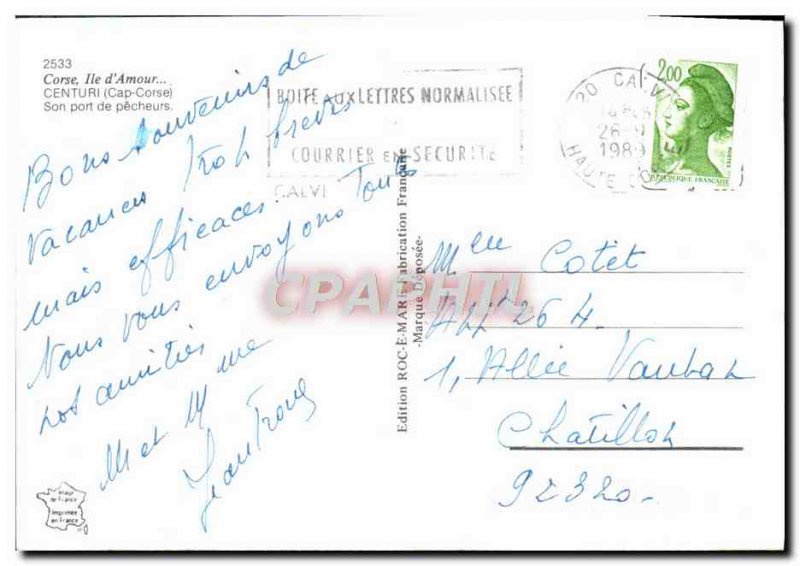 2533
Corse, Ile d'Amour...
CENTURI (Cap-Corse)
Son port de pêcheurs.
BOITE AUX LETTRES NORMALISEE
COURRIER EN SECURITE
CALVI
20 CALVI
26
1989
HAUTE
2,00
REPUBLIQUE FRANÇAISE
POSTES
Bons souvenirs de
vacances trop brèves
mais efficaces Toutes
Nous vous envoyons
nos amitiés
M et Mme
Edition ROC-E-MARE Fabrication Française
-Marque Déposée-
CPAPHIL
Mlle Cotet
Appt 264.
1, Allée Vauban
Chatillon
92320.
Imprimée
en France